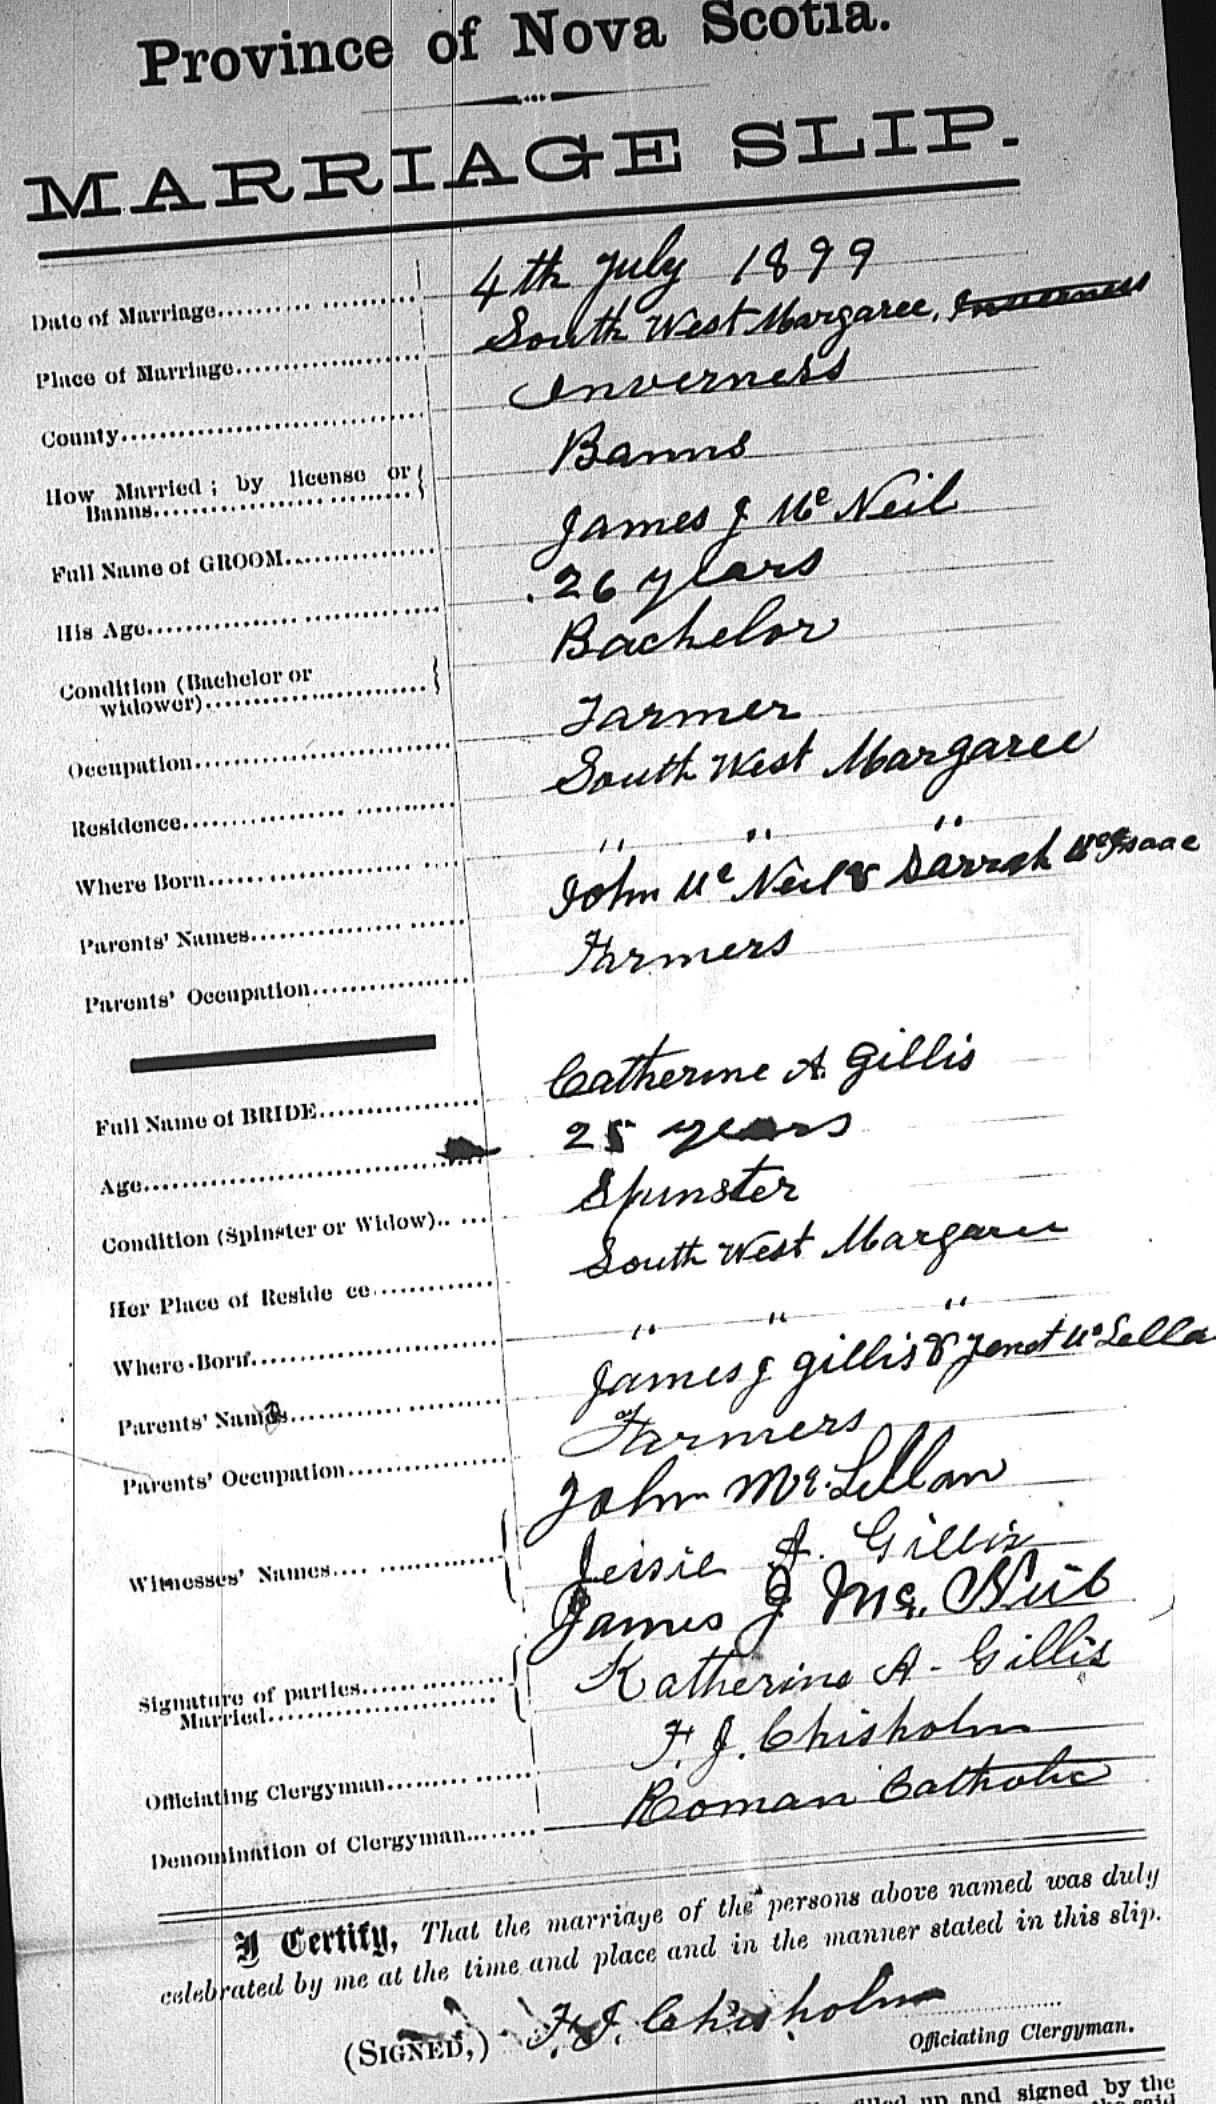 Province of Nova Scotia.
MARRIAGE SLIP.
Date of Marriage 4th July 1899
Place of Marriage South West Margaree, Inverness
County Inverness
How Married; by license or
Banns Banns
Full Name of GROOM James J Mc Neil
His Age 26 years
Condition (Bachelor or
widower) Bachelor
Occupation Farmer
Residence South West Margaree
Where Born " " "
Parents' Names John Mc Neil & Sarrah McIsaac
Parents' Occupation Farmers
Full Name of BRIDE Catherine A. Gillis
Age 25 years
Condition (Spinster or Widow) Spinster
Her Place of Reside ce South West Margaree
Where Born " " "
Parents' Names James J Gillis & Jenet Mc Lella
Parents' Occupation Farmers
John Mc. Lellan
Witnesses' Names Jessie A. Gillis
James J Mc. Neil
Signature of parties
Married Katherine A. Gillis
Officiating Clergyman F. J. Chisholm
Denomination of Clergyman Roman Catholic
I Certify, That the marriage of the persons above named was duly
celebrated by me at the time and place and in the manner stated in this slip.
(SIGNED,) F. J. Chisholm
Officiating Clergyman.
up and signed by the
said